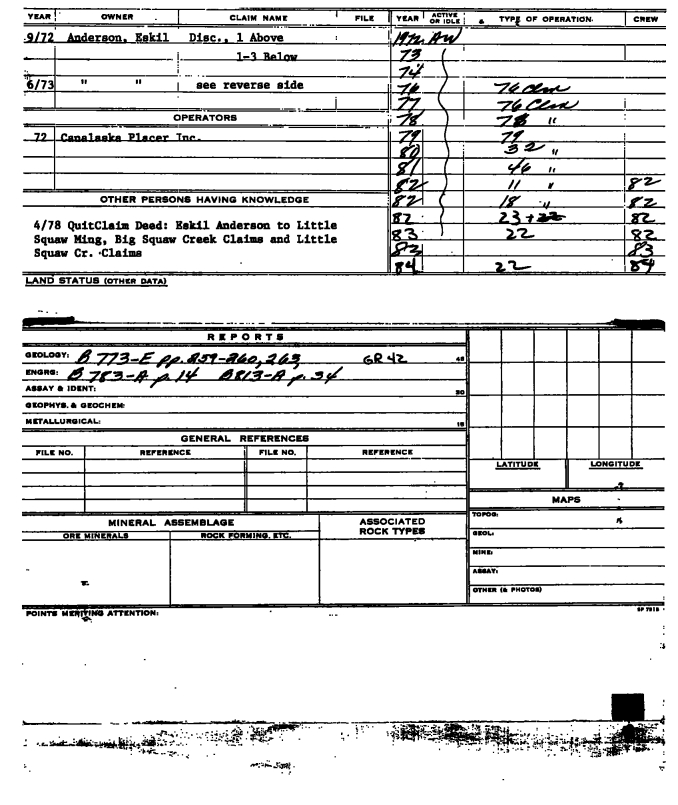 YEAR OWNER CLAIM NAME FILE YEAR ACTIVE OR IDLE & TYPE OF OPERATION CREW
9/72 Anderson, Eskil Disc., 1 Above 1972 AW
1-3 Below 73
74
6/73 " " see reverse side 76 76 Clm
77 76 Clm
OPERATORS 78 78 "
72 Canalaska Placer Inc. 79 79
80 32 "
81 46 "
82 11 " 82
OTHER PERSONS HAVING KNOWLEDGE 82 18 " 82
4/78 QuitClaim Deed: Eskil Anderson to Little 82 23 + 82
Squaw Ming, Big Squaw Creek Claims and Little 83 22 82
Squaw Cr. Claims 83 83
84 22 84
LAND STATUS (OTHER DATA)
REPORTS
GEOLOGY: B 773-E pp. 259-260, 263, GR 42
ENGRG: B 783-A p. 14 B813-A p. 34
ASSAY & IDENT:
GEOPHYS. & GEOCHEM:
METALLURGICAL:
GENERAL REFERENCES
FILE NO. REFERENCE FILE NO. REFERENCE
LATITUDE LONGITUDE
MAPS
MINERAL ASSEMBLAGE ASSOCIATED ROCK TYPES TOPOG:
ORE MINERALS ROCK FORMING, ETC. GEOL:
MINE:
ASSAY:
OTHER (& PHOTOS)
POINTS MERITING ATTENTION: